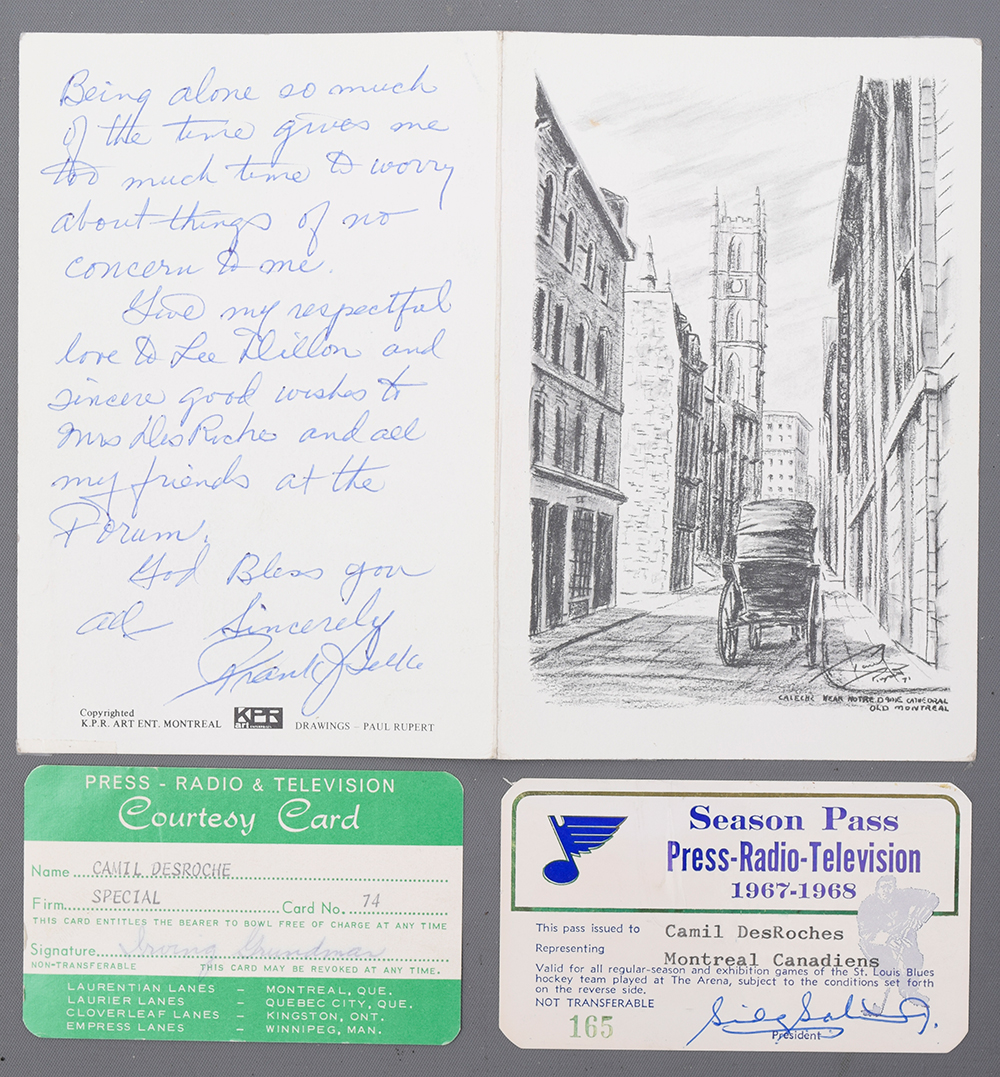 Being alone so much
of the time gives me
too much time to worry
about things of no
concern to me.
Give my respectful
love to Lee Dillon and
sincere good wishes to
Mrs DesRoches and all
my friends at the
Forum.
God Bless you
all Sincerely
Frank J Selke
Copyrighted
K.P.R. ART ENT. MONTREAL
KPR
art
DRAWINGS – PAUL RUPERT
CALECHE NEAR NOTRE DAME CATHEDRAL
OLD MONTREAL
PRESS - RADIO & TELEVISION
Courtesy Card
Name CAMIL DESROCHE
Firm SPECIAL Card No. 74
THIS CARD ENTITLES THE BEARER TO BOWL FREE OF CHARGE AT ANY TIME
Signature Irving Grundman
NON-TRANSFERABLE THIS CARD MAY BE REVOKED AT ANY TIME.
LAURENTIAN LANES – MONTREAL, QUE.
LAURIER LANES – QUEBEC CITY, QUE.
CLOVERLEAF LANES – KINGSTON, ONT.
EMPRESS LANES – WINNIPEG, MAN.
Season Pass
Press-Radio-Television
1967-1968
This pass issued to Camil DesRoches
Representing Montreal Canadiens
Valid for all regular-season and exhibition games of the St. Louis Blues
hockey team played at The Arena, subject to the conditions set forth
on the reverse side.
NOT TRANSFERABLE
165
President